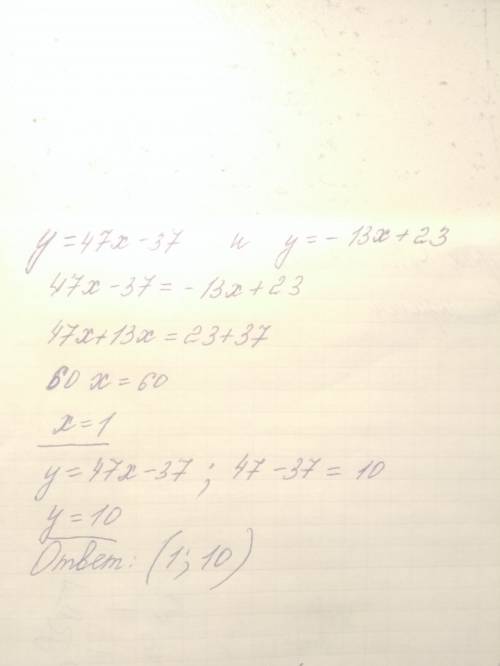 y = 47x - 37 и y = - 13x + 23
47x - 37 = - 13x + 23
47x + 13x = 23 + 37
60 x = 60
x = 1
y = 47x - 37 ; 47 - 37 = 10
y = 10
Ответ: (1; 10)